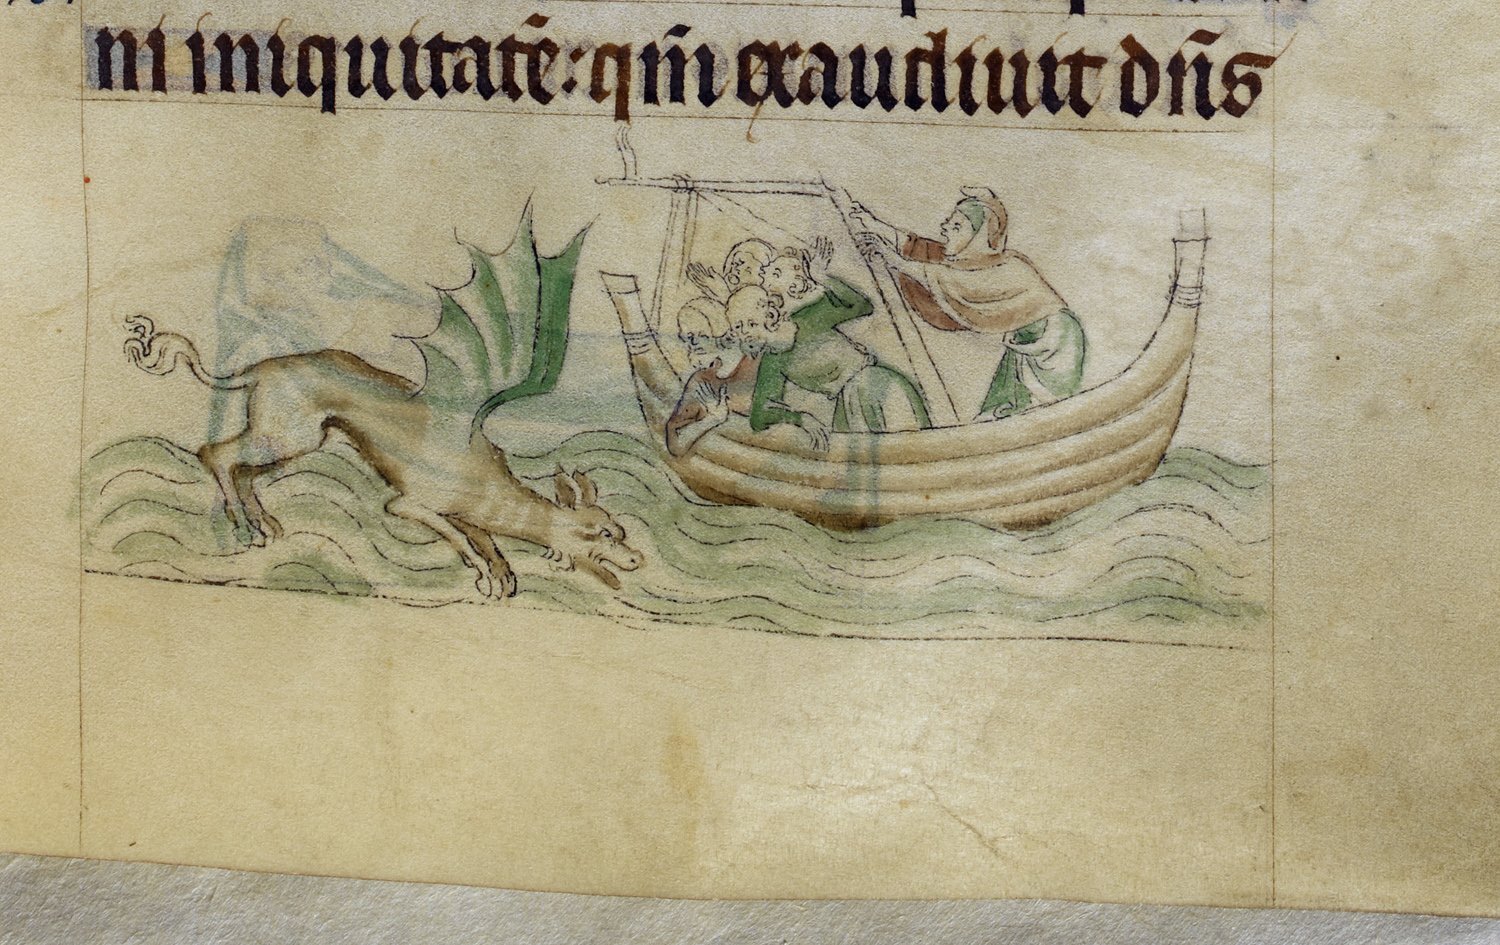 ni iniquitatē: qm̄ exaudiuit dn̄s